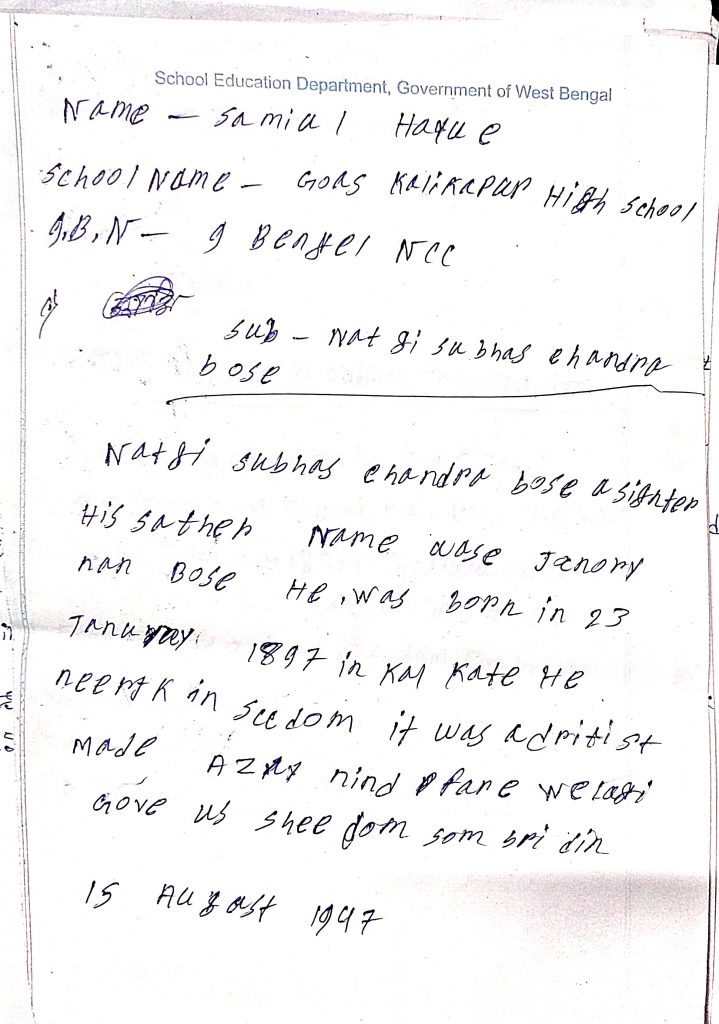 School Education Department, Government of West Bengal
Name – Samiul Haque
School Name – Goas Kalikapur High School
g.B.N – 9 Bengel NCC
Sub – Natgi subhas chandra
bose
Natgi subhas chandra bose a sighter
His sather Name wase Janory
nan Bose He was born in 23
Janu 1897 in Kal Kate He
in seedom it was a dritist
made nind
Gove us shee dom som bri din
15 August 1947